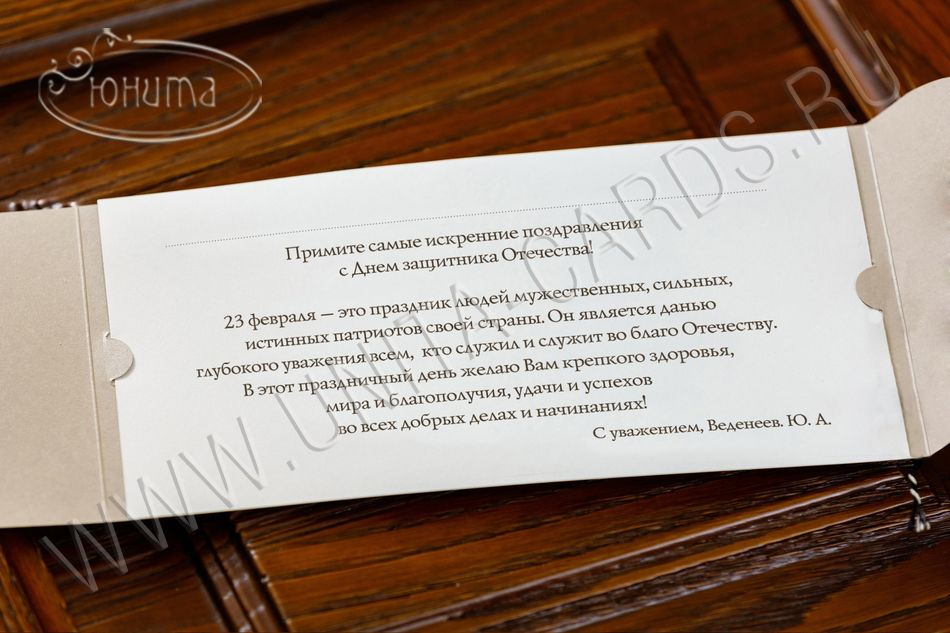 Юнита
Примите самые искренние поздравления
с Днем защитника Отечества!
23 февраля — это праздник людей мужественных, сильных,
истинных патриотов своей страны. Он является данью
глубокого уважения всем, кто служил и служит во благо Отечеству.
В этот праздничный день желаю Вам крепкого здоровья,
мира и благополучия, удачи и успехов
во всех добрых делах и начинаниях!
С уважением, Веденеев. Ю. А.
WWW.UNITA-CARDS.RU